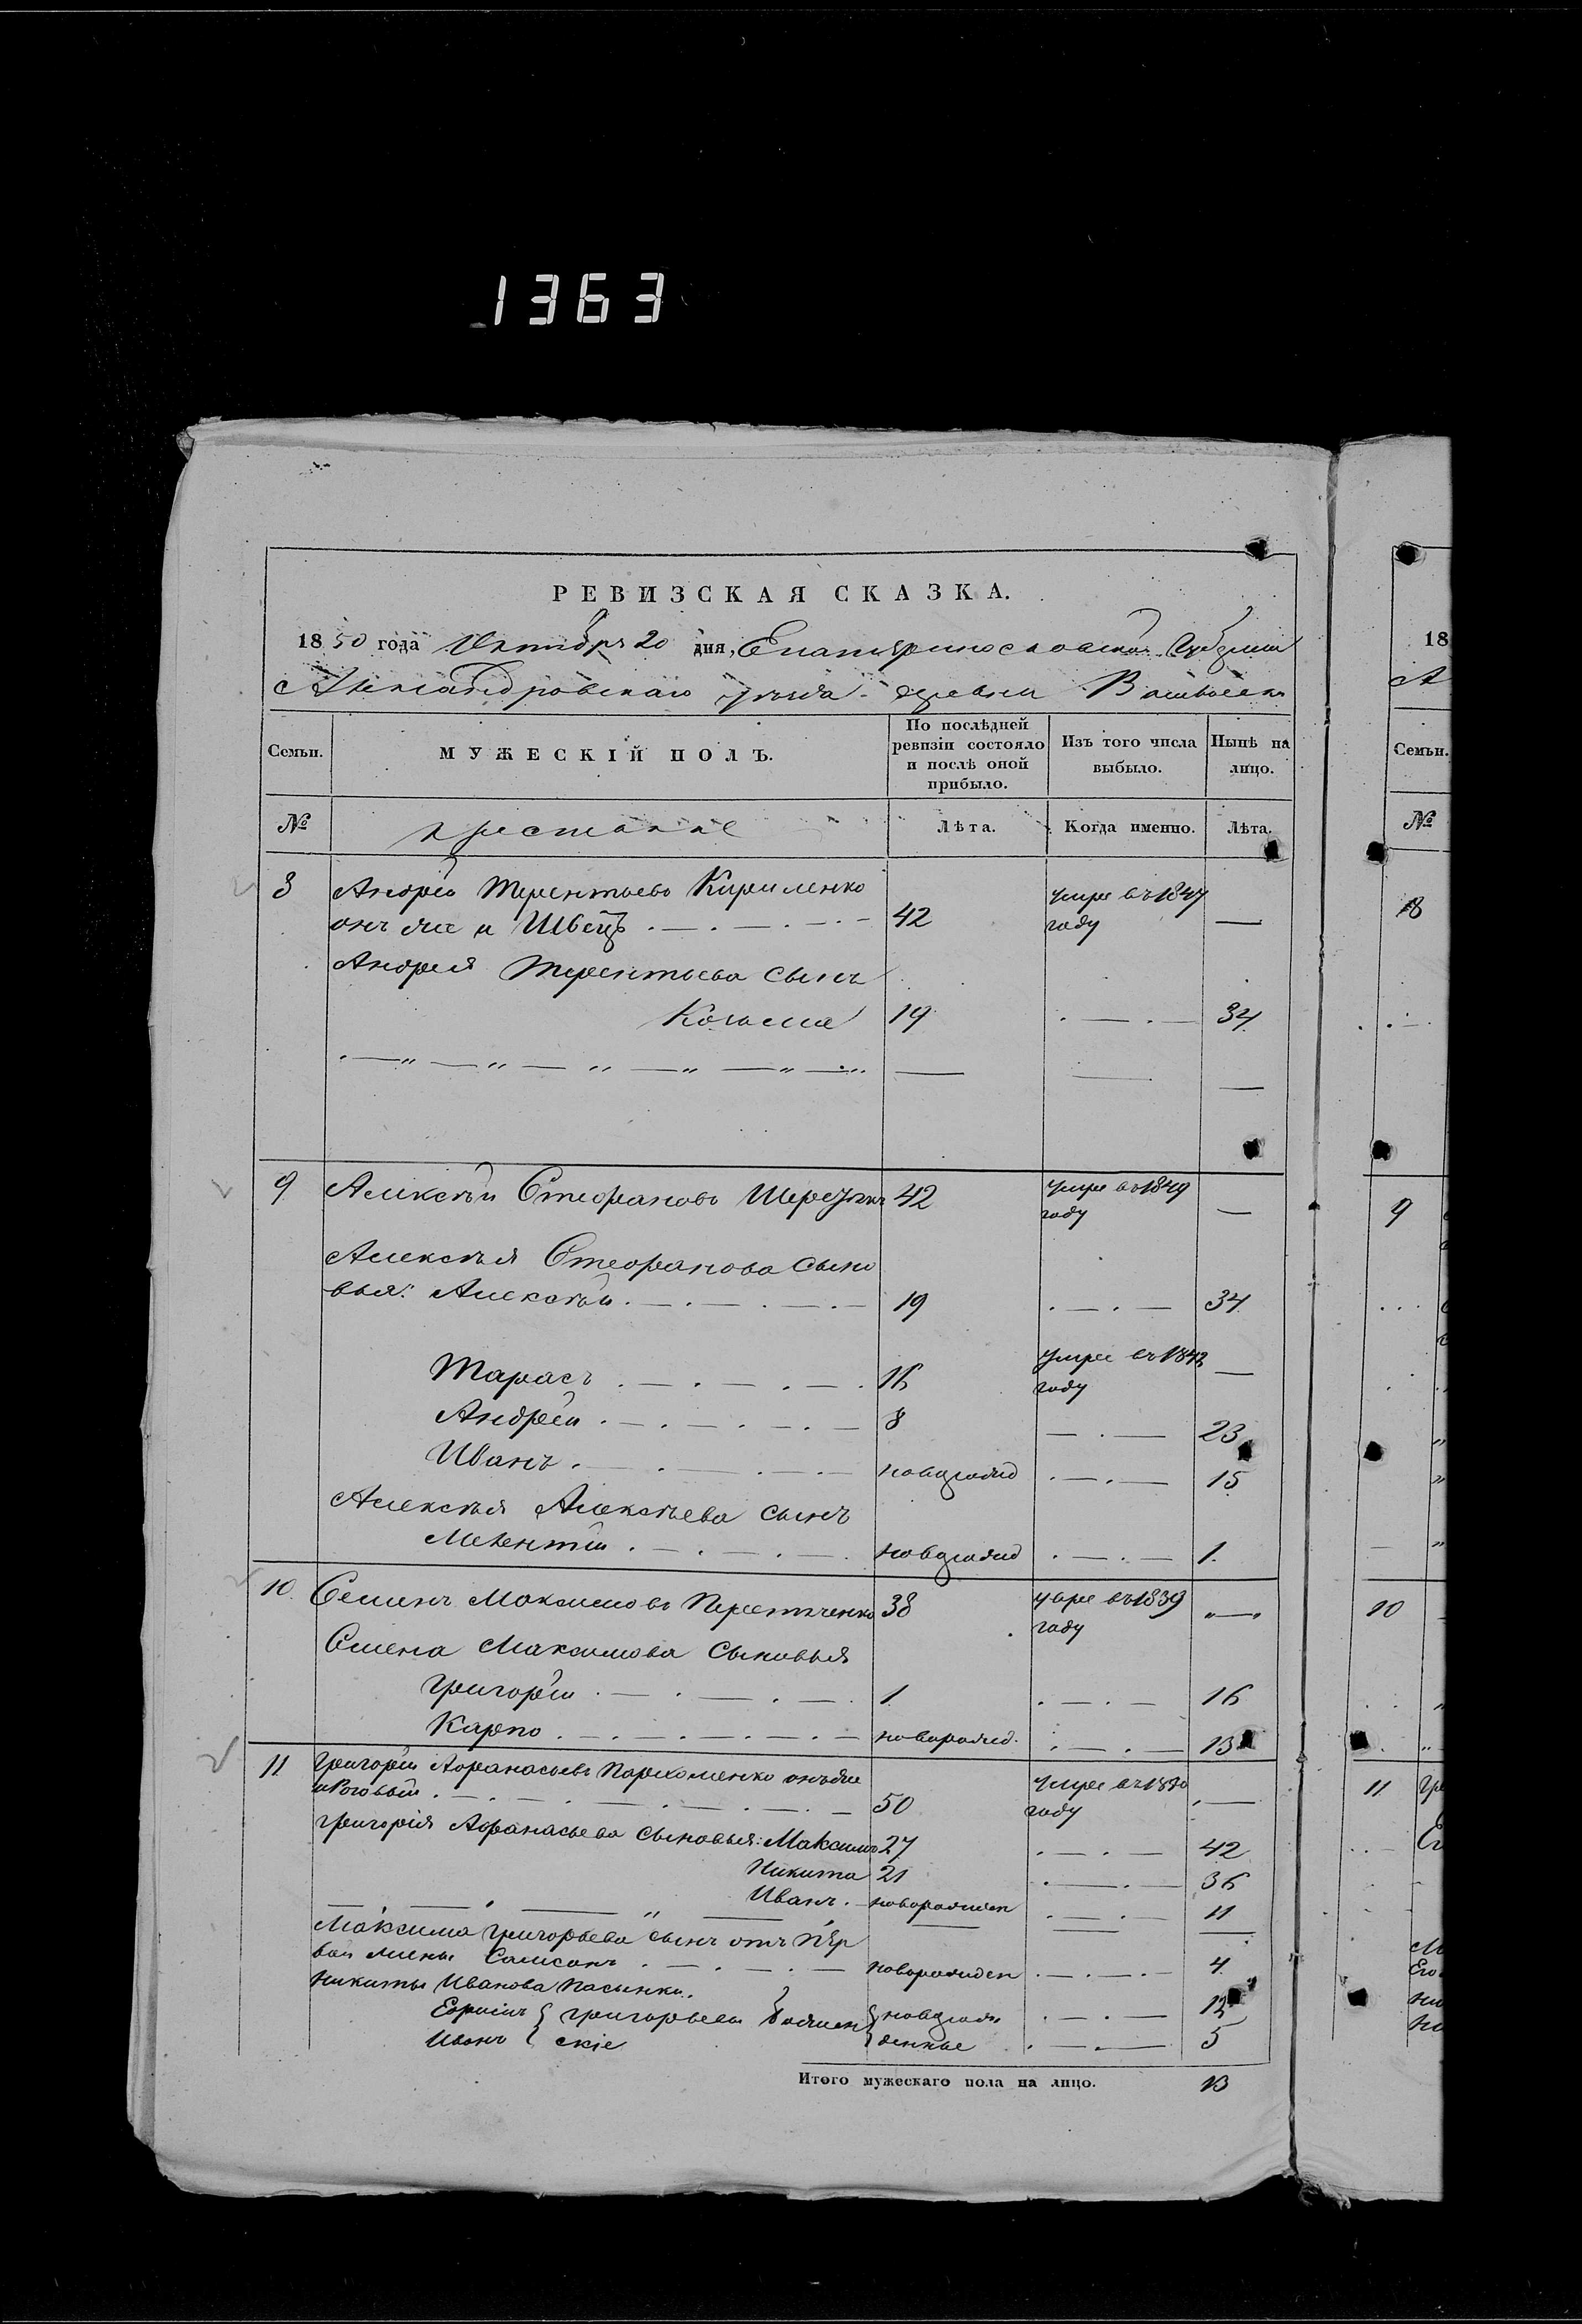 1363
РЕВИЗСКАЯ СКАЗКА.
1850 года Октября 20 дня, Екатеринославской Губернии
Александровскаго уезда деревни
Семьи.
МУЖЕСКІЙ ПОЛЪ.
По послѣдней ревизіи состояло и послѣ оной прибыло.
Изъ того числа выбыло.
Нынѣ на лицо.
№ крестьяне Лѣта. Когда именно. Лѣта.
8 Андрей Терентьевъ Кириленко умре въ 1847
онъ же и Швецъ 42 году —
Андрея Терентьева сынъ
Козьма 19 — 34
9 Алексѣй Стефановъ 42 умре въ 1849 году —
Алексѣя Стефанова сыно
вья: Алексѣй 19 — 34
Тарасъ 16 умре въ году —
Андрей 8 — 23
Иванъ новорожд — 15
Алексѣя Алексѣева сынъ
Мелентій новорожд — 1.
10 Семенъ Максимовъ 38 умре въ 1839 году „—„
Семена Максимова сыновья
Григорій 1 — 16
Карпо новорожд. — 13
11 Григорій Афанасьевъ Пархоменко онъ же
и 50 умре въ году —
Григорія Афанасьева сыновья: Максимъ 27 — 42
Никита 21 — 36
Иванъ новорожден — 11
Максима Григорьева сынъ отъ пер
вой жены Самсонъ новорожден — 4
Никиты Иванова пасынки
Ефимъ { Григорьевы } { новорож — 12
Иванъ { скіе { денные — 5
Итого мужескаго пола на лицо. 13
18
Семьи.
№
8
9
10
11